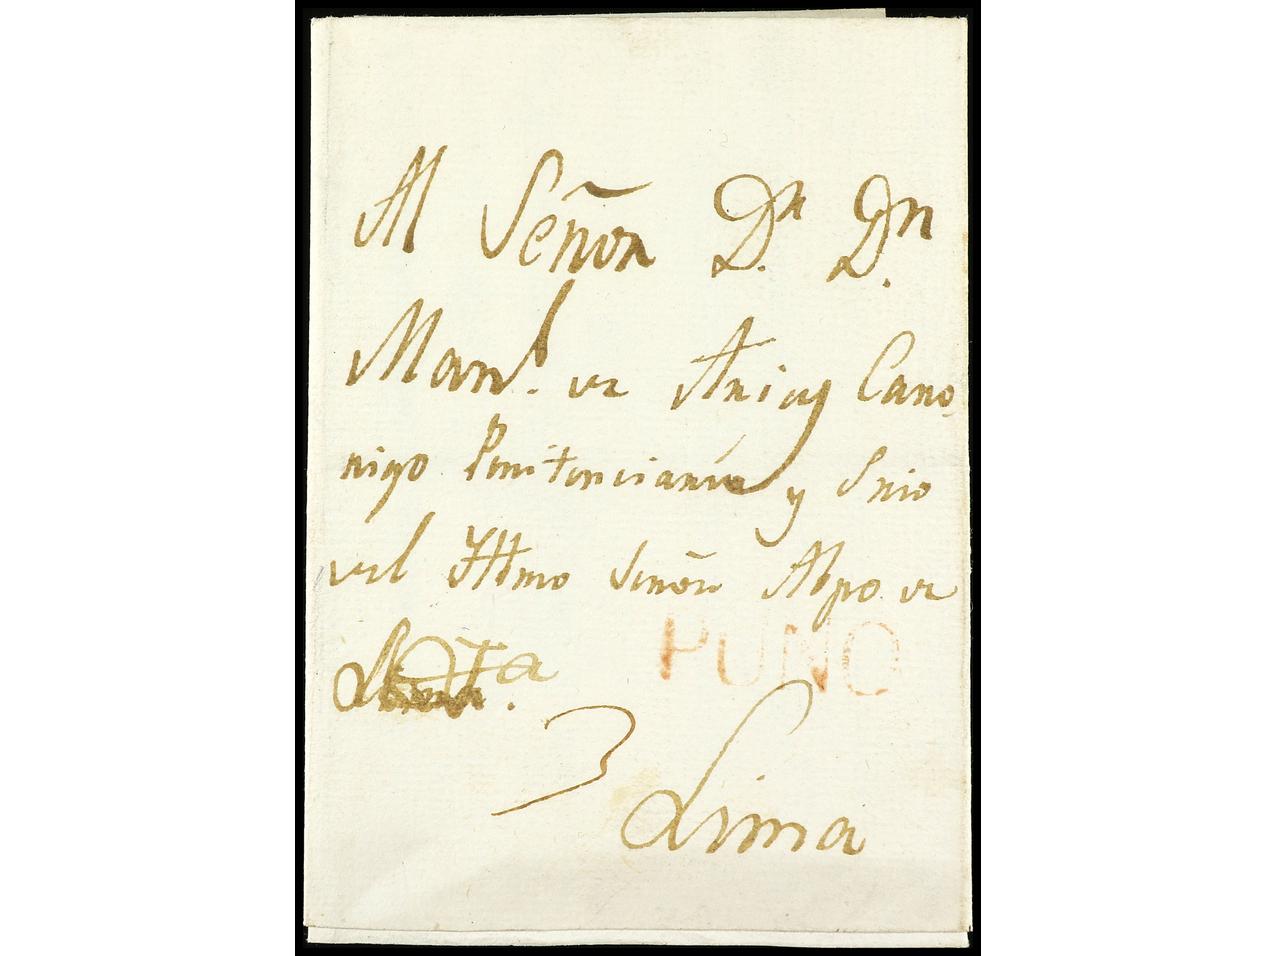 Al Señor Dn. Dn.
Manl. de Arias Cano-
nigo Penitenciario y Srio
del Illmo Señor Abpo de
PUNO
3
Lima